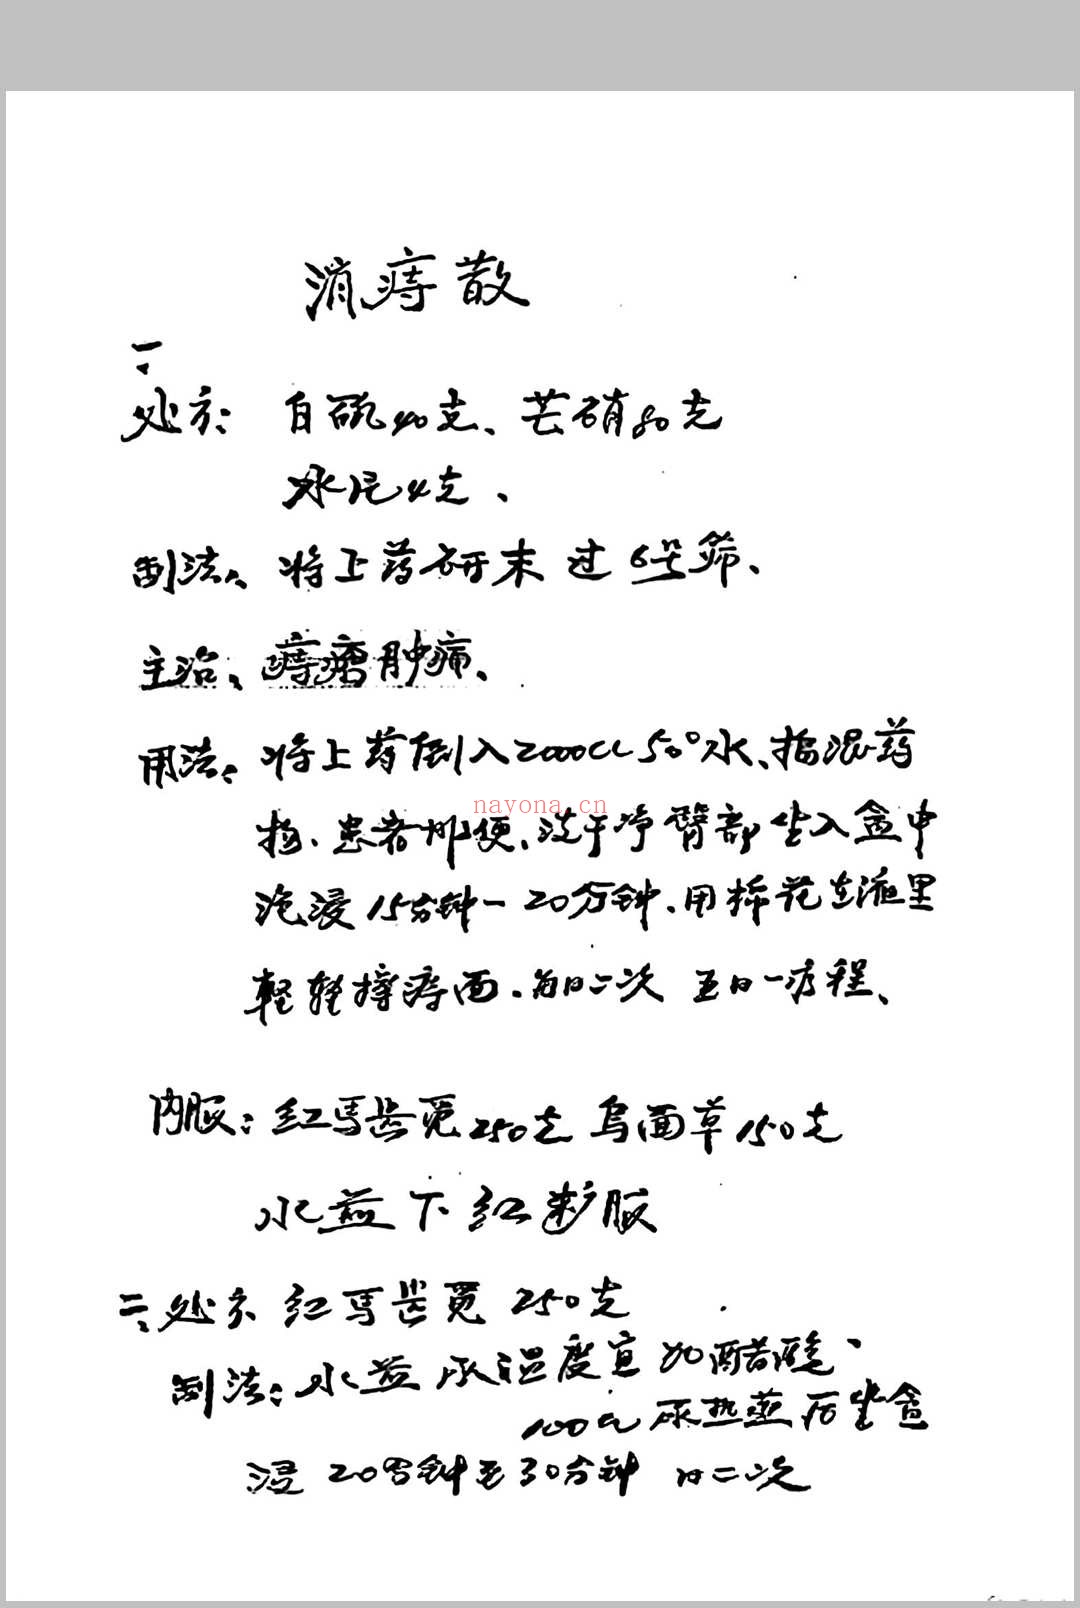 消痔散
一、
处方: 白矾40克、芒硝80克
水尼4克、
制法、将上药研末 过6号筛、
主治、痔瘡肿痛、
用法: 将上药倒入2000cc50°水、搞混药
nayona.cn
患者排便、洗干净臀部坐入盆中
泡浸15分钟-20分钟、用棉花在液里
轻轻擦痔面、每日二次 五日一疗程、
内服: 红马齿苋250克 草150克
水益下红 服
二、处方 红马齿苋 250克
制法: 水益 温度宜 加醋酸、
100cc 尿热蒸后坐盆
浸 20分钟至30分钟 日二次